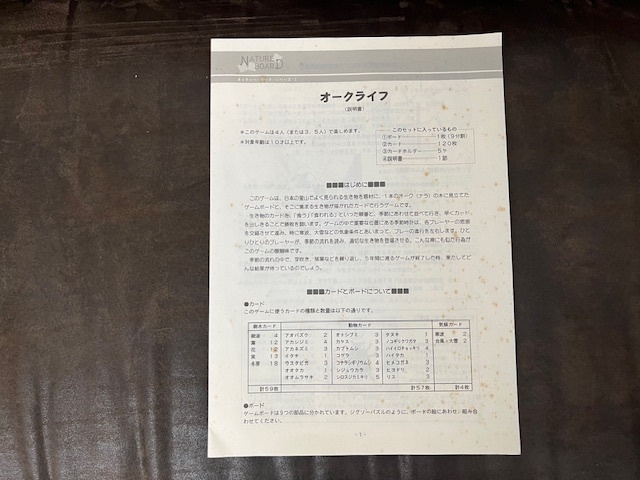 NATURE
BOARD
オークライフ
(説明書)
*このゲームは4人(または3、5人)で楽しめます。
*対象年齢は10才以上です。
このセットに入っているもの
①ボード 1枚(9分割)
②カード 120枚
③カードホルダー 5ヶ
④説明書 1部
■■■はじめに■■■
このゲームは、日本の里山でよく見られる生き物を題材に、1本のオーク(ナラ)の木に見立てた
ゲームボードと、そこに集まる生き物が描かれたカードで行うゲームです。
生き物のカードを、「食う」「食われる」といった順番と、季節にあわせて並べて行き、早くカード
を出しきることで勝敗を競います。ゲームの中で重要な位置にある季節時計は、各プレーヤーの思惑
を交錯させて進み、時に寒波、大雪などの気象条件とあいまって、プレーの進行を左右します。ひと
りひとりのプレーヤーが、季節の流れを読み、適切な生き物を登場させる。こんな
このゲームの醍醐味です。
季節の流れの中で、芽吹き、落葉などを繰り返し、5年間に渡るゲームが終了した時、果たしてど
んな結果が待っているのでしょう。
■■■カードとボードについて■■■
●カード
このゲームに使うカードの種類と数量は以下の通りです。
樹木カード 動物カード 気候カード
4 アオバズク 2 オトシブミ 3 タヌキ 1 寒波 2
葉 12 アカシジミ 4 カケス 3 ノコギリクワガタ 3 台風・大雪 2
花 12 アカネズミ 3 カブトムシ 3 ハイイロチョッキリ 4
実 13 イタチ 1 コゲラ 3 ハイタカ 1
冬芽 18 ウスタビガ 3 コナラシギゾウムシ 4 ヒメコガネ 3
オオタカ 1 シジュウカラ 3 ヒヨドリ 2
オオムラサキ 2 シロスジカミキリ 5 リス 3
計59枚 計57枚 計4枚
●ボード
ゲームボードは9つの部品に分かれています。ジグソーパズルのように、ボードの絵にあわせ、組み合
わせてください。
-1-